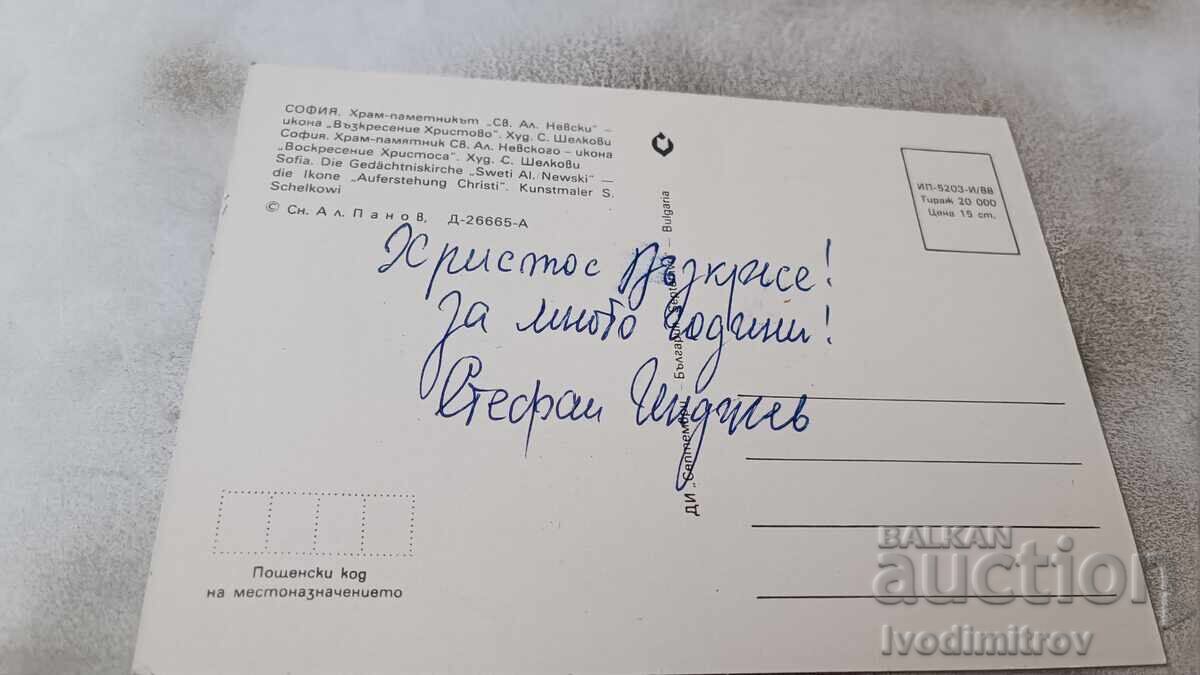 СОФИЯ. Храм-паметникът „Св. Ал. Невски" –
икона „Възкресение Христово". Худ. С. Шелкови
София. Храм-памятник Св. Ал. Невского – икона
„Воскресение Христоса". Худ. С. Шелкови
Sofia. Die Gedächtniskirche „Sweti Al. Newski" —
die Ikone „Auferstehung Christi". Kunstmaler S.
Schelkowi
© Сн. Ал. Панов, Д-26665-А
ИП-5203-И/88
Тираж 20 000
Цена 15 ст.
Христос Възкресе!
За много години!
Стефан
ДИ „Септември" – България – Bulgaria
Пощенски код
на местоназначението
BALKAN
auction
Ivodimitrov